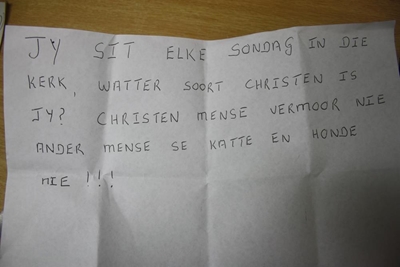 JY SIT ELKE SONDAG IN DIE
KERK, WATTER SOORT CHRISTEN IS
JY? CHRISTEN MENSE VERMOOR NIE
ANDER MENSE SE KATTE EN HONDE
NIE !!!